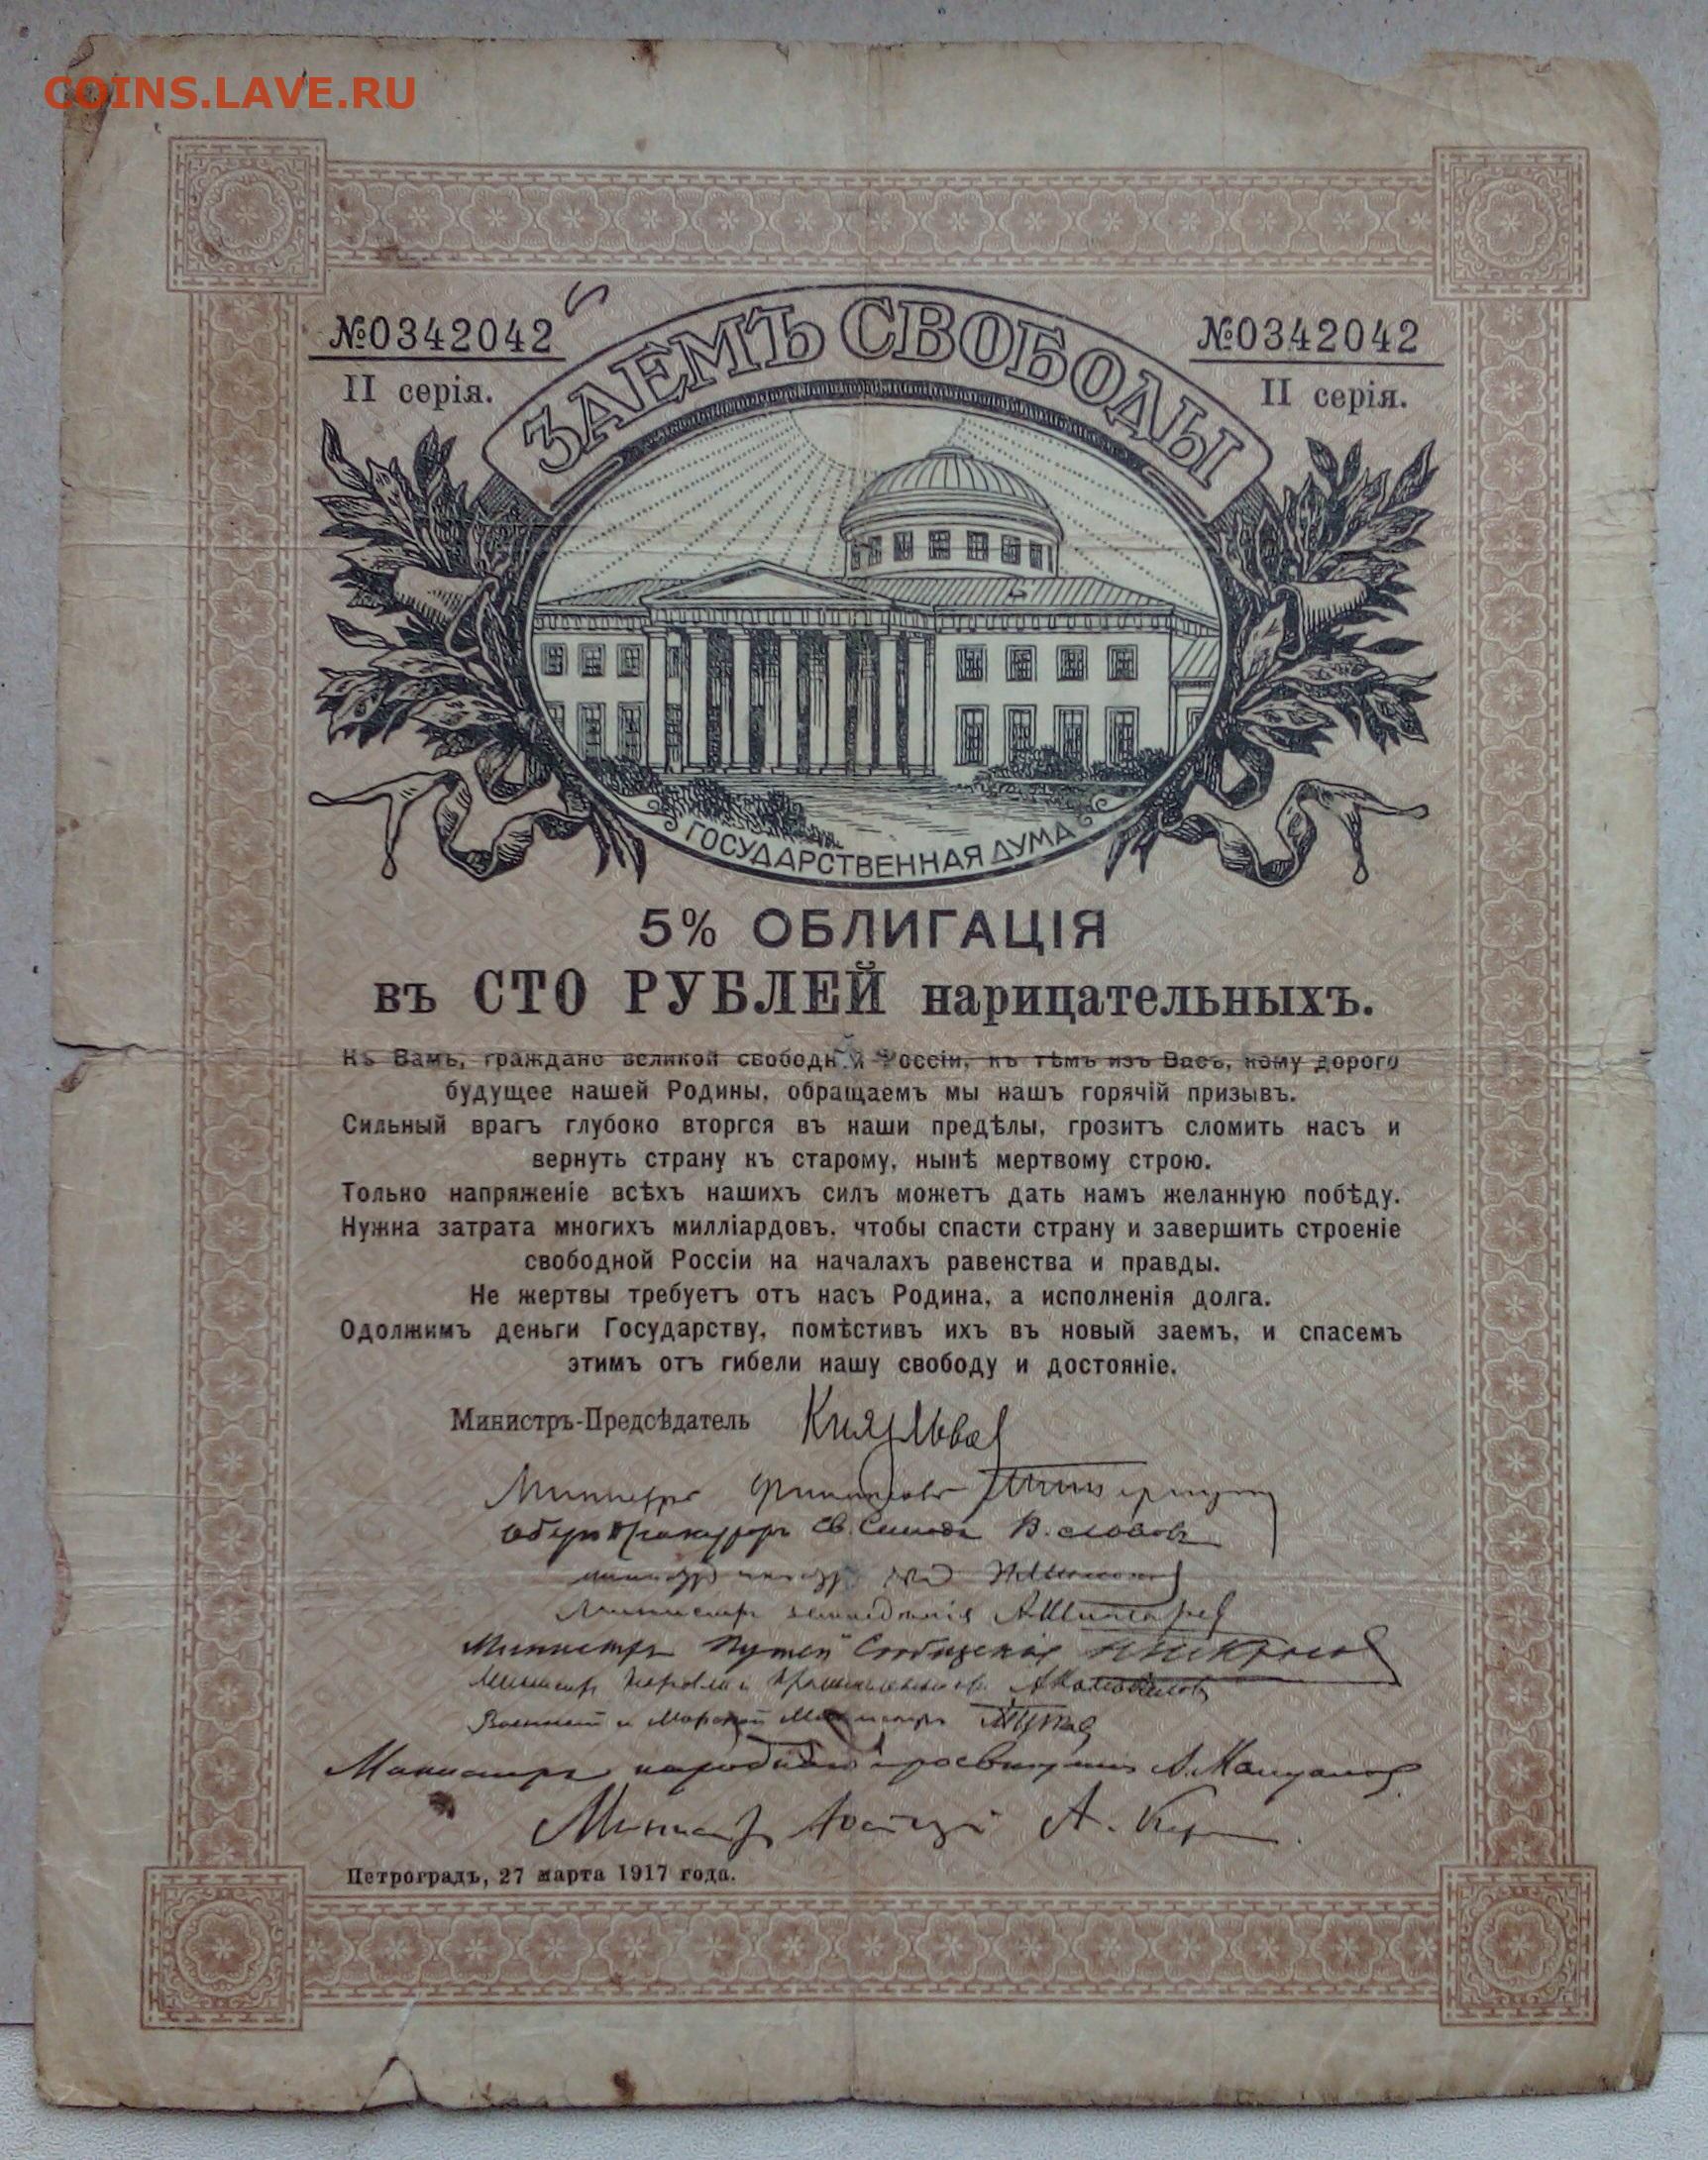 COINS.LAVE.RU
№0342042
№0342042
II серія.
II серія.
ЗАЕМЪ СВОБОДЫ
ГОСУДАРСТВЕННАЯ ДУМА
5% ОБЛИГАЦІЯ
въ СТО РУБЛЕЙ нарицательныхъ.
Къ Вамъ, граждане великой свободной Россіи, къ тѣмъ изъ Васъ, кому дорого
будущее нашей Родины, обращаемъ мы нашъ горячій призывъ.
Сильный врагъ глубоко вторгся въ наши предѣлы, грозитъ сломить насъ и
вернуть страну къ старому, нынѣ мертвому строю.
Только напряженіе всѣхъ нашихъ силъ можетъ дать намъ желанную побѣду.
Нужна затрата многихъ милліардовъ, чтобы спасти страну и завершить строеніе
свободной Россіи на началахъ равенства и правды.
Не жертвы требуетъ отъ насъ Родина, а исполненія долга.
Одолжимъ деньги Государству, помѣстивъ ихъ въ новый заемъ, и спасемъ
этимъ отъ гибели нашу свободу и достояніе.
Министръ-Предсѣдатель Князь Львов
Министръ Финансовъ
Оберъ Прокуроръ Св. Синода В. Львовъ
Министръ земледѣлія А Шингарев
Министръ Путей Сообщенія Н Некрасов
Министр Торговли и Промышленности А Коновалов
Военный и Морской Министръ
Министръ народнаго просвещения А. Мануилов
Министр Юстиции А. Кер
Петроградъ, 27 марта 1917 года.